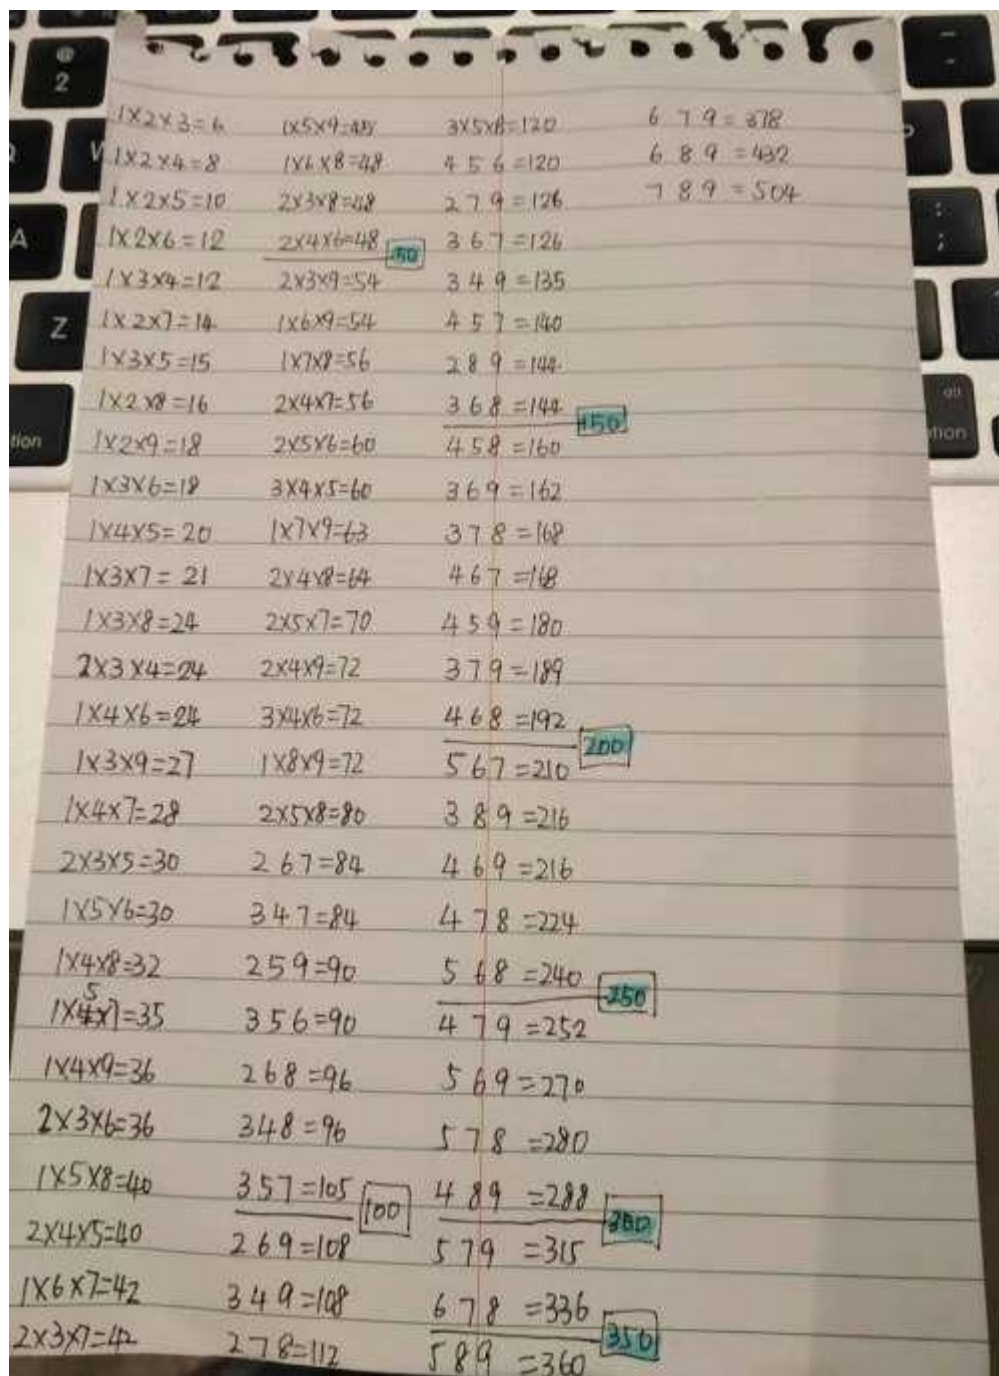 1×2×3=6
1×2×4=8
1×2×5=10
1×2×6=12
1×3×4=12
1×2×7=14
1×3×5=15
1×2×8=16
1×2×9=18
1×3×6=18
1×4×5=20
1×3×7=21
1×3×8=24
2×3×4=24
1×4×6=24
1×3×9=27
1×4×7=28
2×3×5=30
1×5×6=30
1×4×8=32
1×5×7=35
1×4×9=36
2×3×6=36
1×5×8=40
2×4×5=40
1×6×7=42
2×3×7=42
1×5×9=45
1×6×8=48
2×3×8=48
2×4×6=48
50
2×3×9=54
1×6×9=54
1×7×8=56
2×4×7=56
2×5×6=60
3×4×5=60
1×7×9=63
2×4×8=64
2×5×7=70
2×4×9=72
3×4×6=72
1×8×9=72
2×5×8=80
2 6 7=84
3 4 7=84
2 5 9=90
3 5 6=90
2 6 8=96
3 4 8=96
3 5 7=105
100
2 6 9=108
3 4 9=108
2 7 8=112
3×5×8=120
4 5 6=120
2 7 9=126
3 6 7=126
3 4 9=135
4 5 7=140
2 8 9=144
3 6 8=144
150
4 5 8=160
3 6 9=162
3 7 8=168
4 6 7=168
4 5 9=180
3 7 9=189
4 6 8=192
200
5 6 7=210
3 8 9=216
4 6 9=216
4 7 8=224
5 6 8=240
250
4 7 9=252
5 6 9=270
5 7 8=280
4 8 9=288
300
5 7 9=315
6 7 8=336
350
5 8 9=360
6 7 9=378
6 8 9=432
7 8 9=504
@
2
A
Z
tion
-
:
;
alt
tion